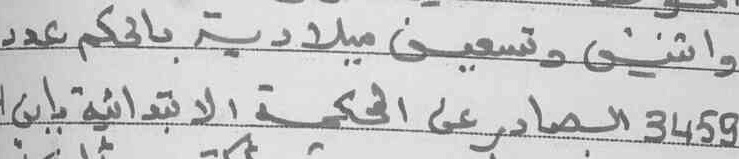 واثنين وتسعين ميلادية بالحكم عدد
3459 الصادر على المحكمة الابتدائية بابن